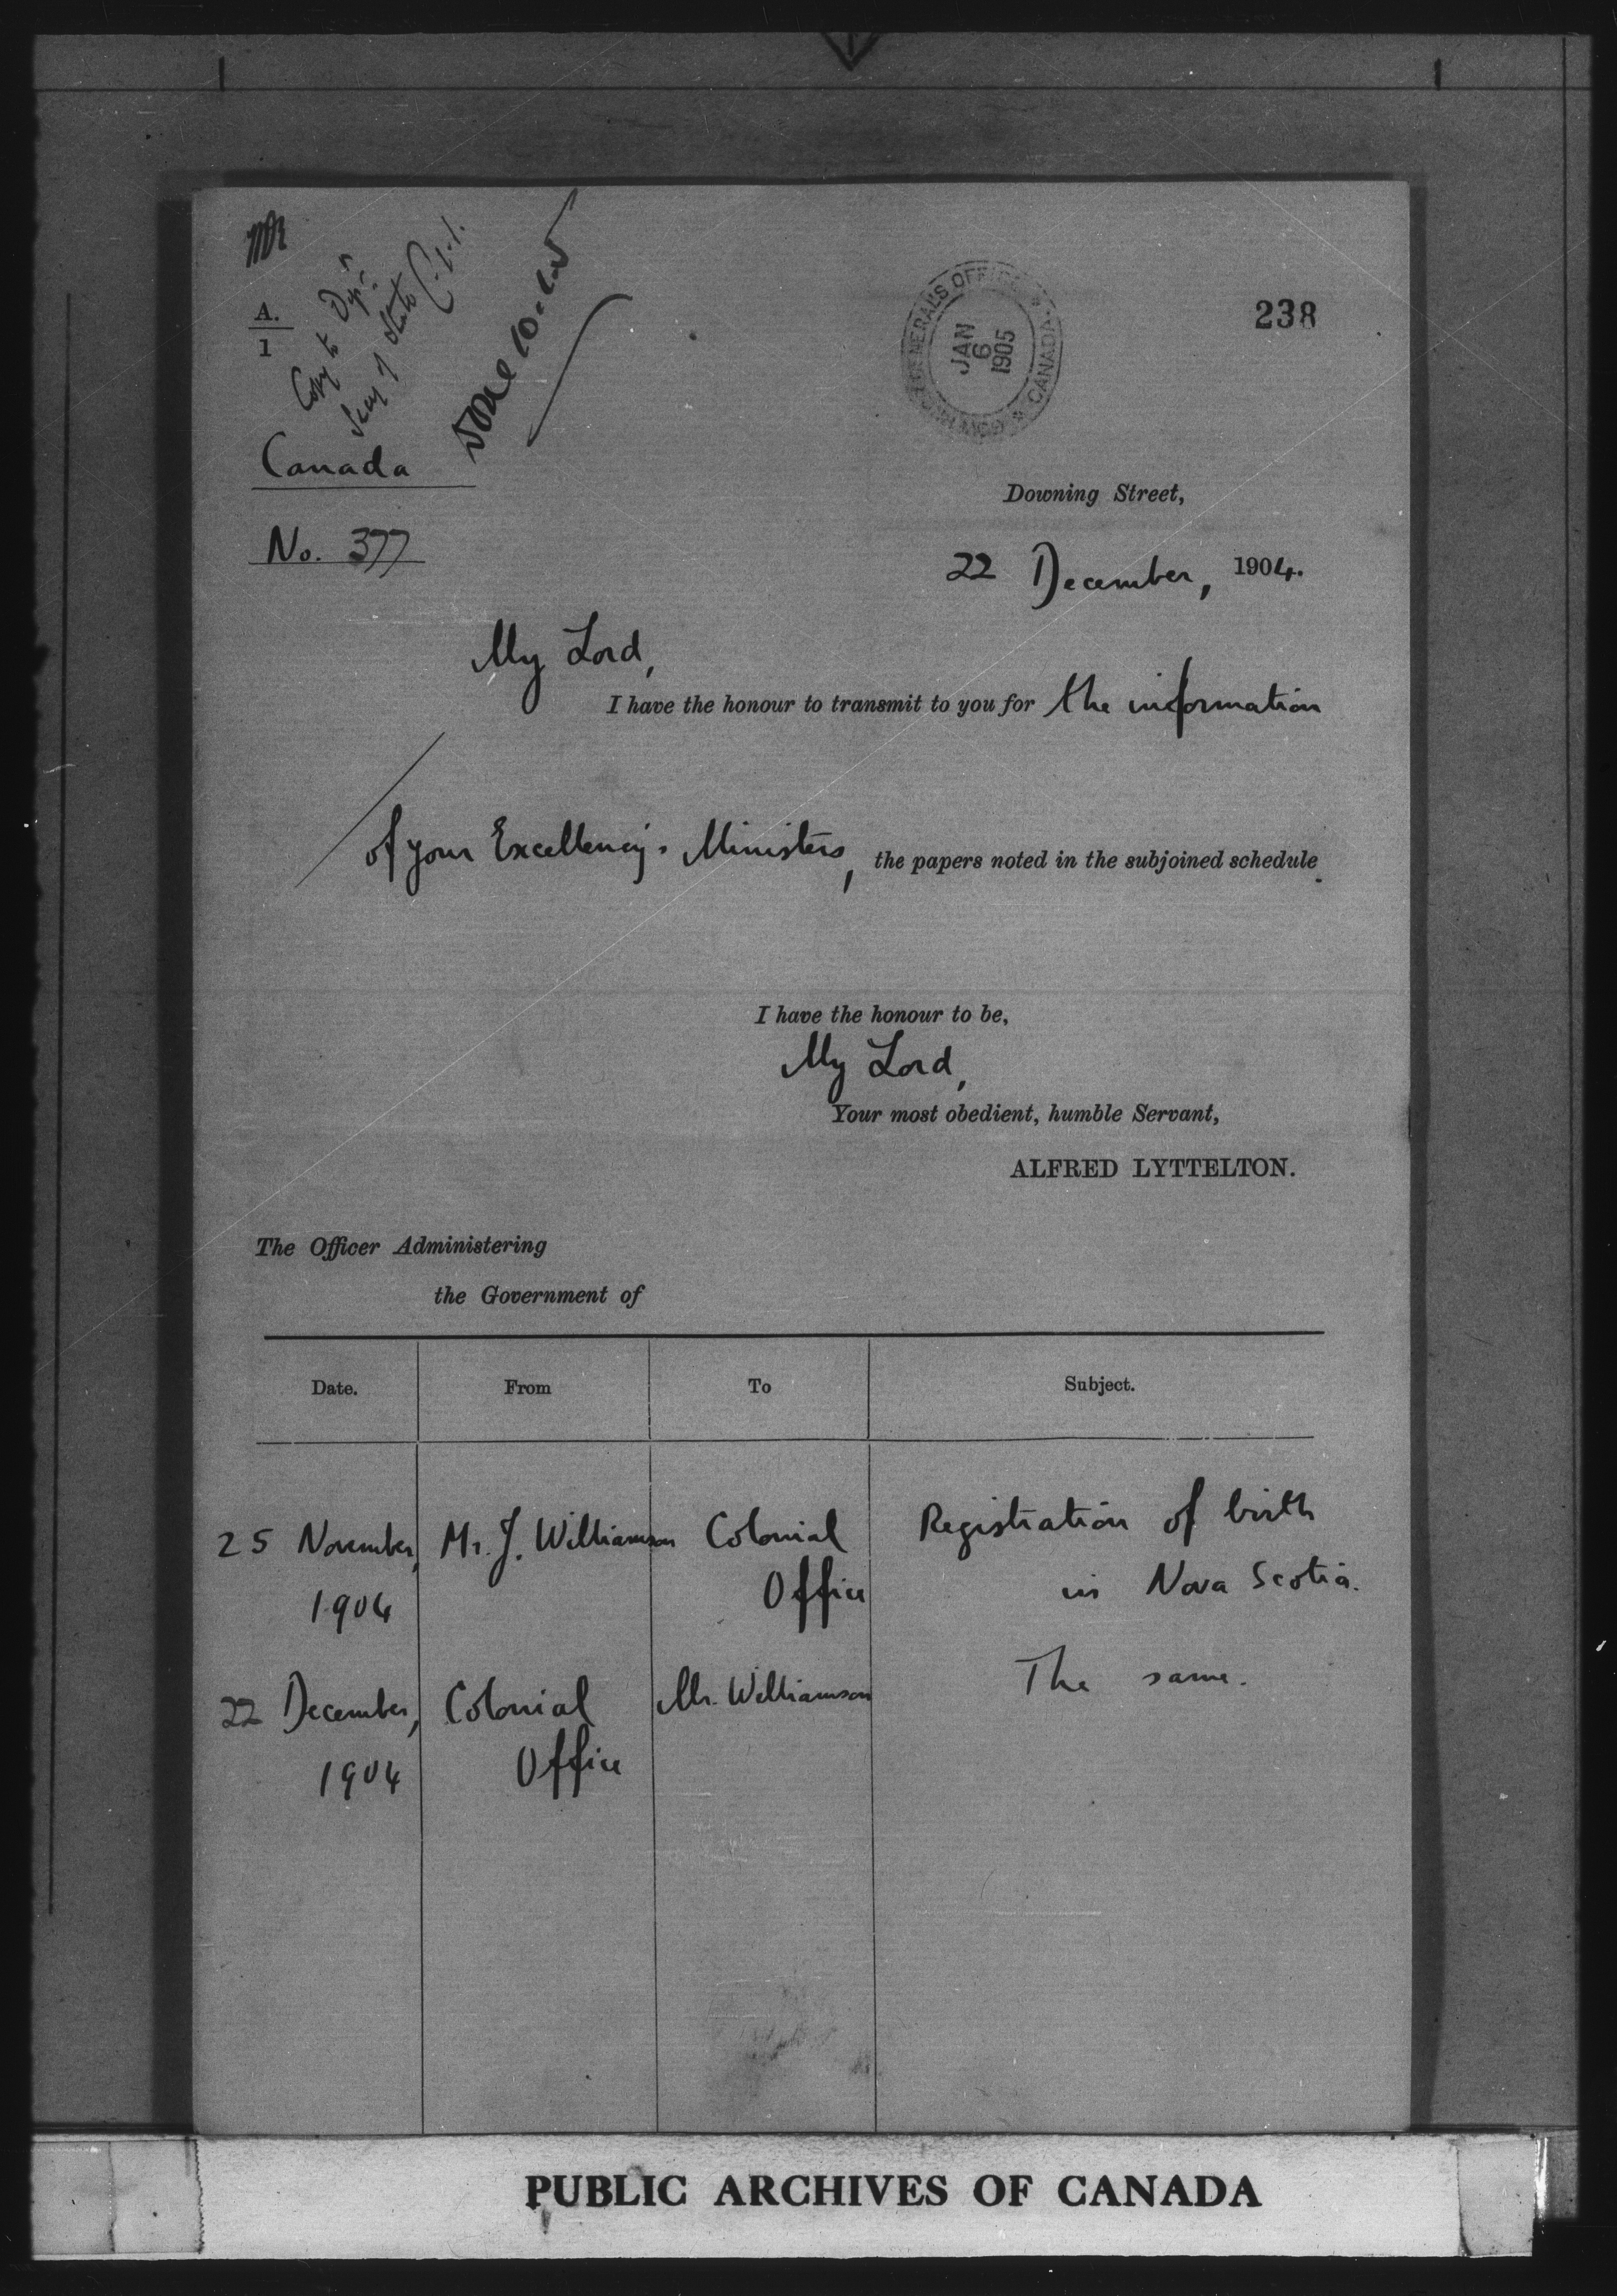 A.
1
Copy to
Secy of State
238
GOVERNOR GENERAL'S OFFICE * CANADA *
JAN
6
1905
Canada
No. 377
Downing Street,
22 December, 1904.
My Lord,
I have the honour to transmit to you for the information
of your Excellency's Ministers, the papers noted in the subjoined schedule.
I have the honour to be,
My Lord,
Your most obedient, humble Servant,
ALFRED LYTTELTON.
The Officer Administering
the Government of
Date. From To Subject.
25 November, Mr. J. Williamson Colonial Registration of birth
1904 Office in Nova Scotia.
22 December, Colonial Mr. Williamson The same.
1904 Office
PUBLIC ARCHIVES OF CANADA